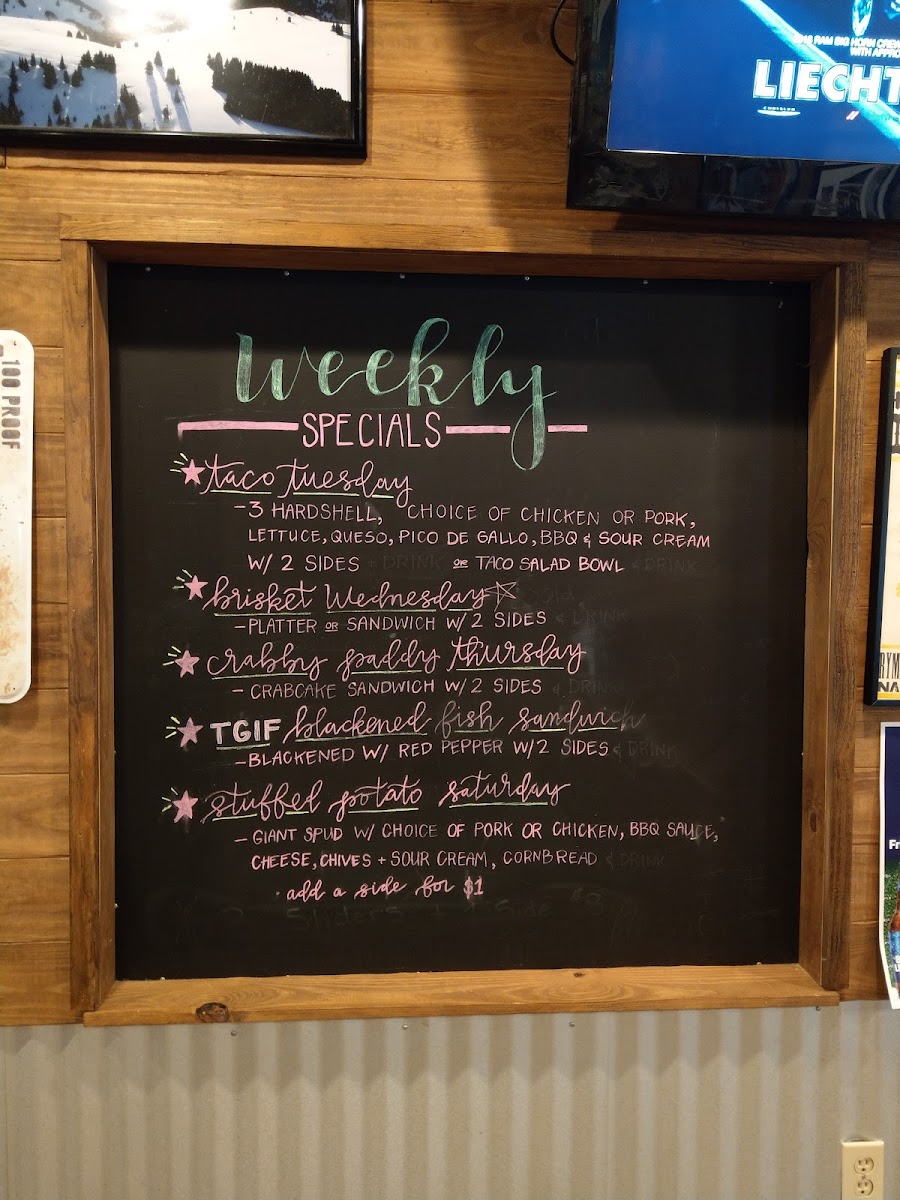 2018 RAM BIG HORN CREW
WITH APPRO
LIECHT
CHRYSLER
100 PROOF
Weekly
SPECIALS
taco tuesday
- 3 HARDSHELL, CHOICE OF CHICKEN OR PORK,
LETTUCE, QUESO, PICO DE GALLO, BBQ & SOUR CREAM
W/ 2 SIDES + DRINK OR TACO SALAD BOWL & DRINK
brisket Wednesday
- PLATTER OR SANDWICH W/ 2 SIDES & DRINK
crabby paddy thursday
- CRABCAKE SANDWICH W/ 2 SIDES & DRINK
TGIF blackened fish sandwich
- BLACKENED W/ RED PEPPER W/2 SIDES & DRINK
stuffed potato saturday
- GIANT SPUD W/ CHOICE OF PORK OR CHICKEN, BBQ SAUCE,
CHEESE, CHIVES + SOUR CREAM, CORNBREAD & DRINK
add a side for $1
Sliders
Side $8
RYM
NA
Fr